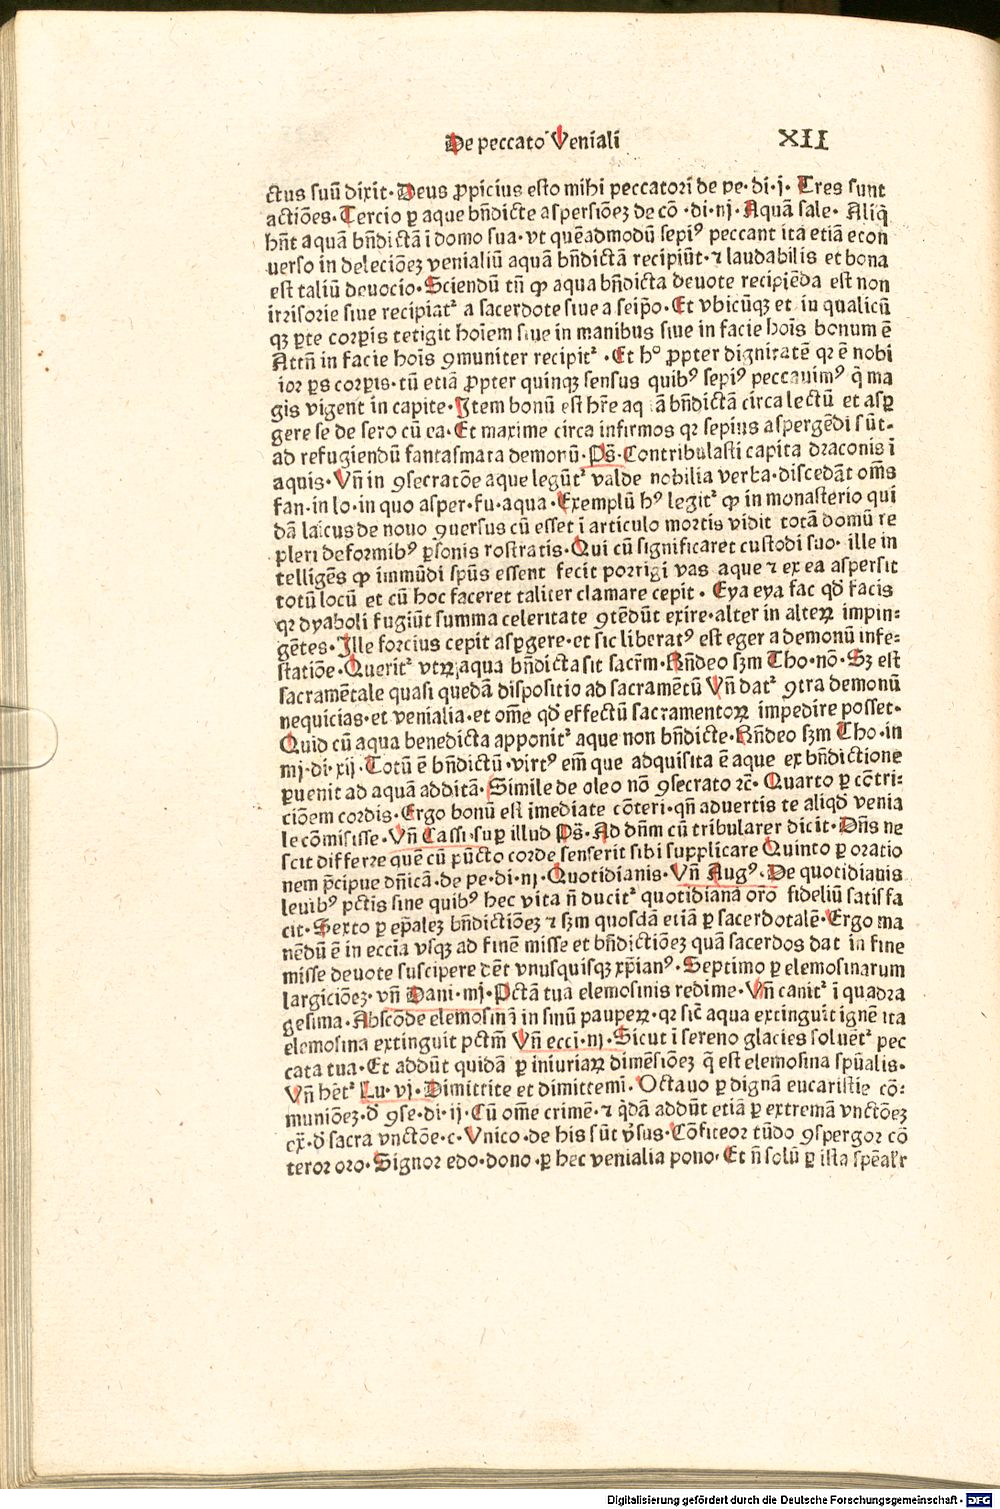 De peccato Veniali XII
ctus suū dixit· Deus ꝓpicius esto mihi peccatori de pe· di· j· Tres sunt
actiōes· Tercio ꝑ aque bn̄dicte aspersiōeꝫ de cō ·di· nj· Aquā sale· Aliq̄
hn̄t aquā bn̄dictā ī domo sua· vt quēadmodū sepiꝰ peccant ita etiā econ
uerso in deleciōeꝫ venialiū aquā bn̄dictā recipiūt· ⁊ laudabilis et bona
est taliū deuocio· Sciendū tn̄ ꝙ aqua bn̄dicta deuote recipiēda est non
irrisorie siue recipiat᷑ a sacerdote siue a seip̄o· Et vbicūqꝫ et in qualicū
qꝫ ꝑte corꝑis tetigit hoīem siue in manibus siue in facie hoīs bonum ē
Attn̄ in facie hoīs ꝯmuniter recipit᷑ ·Et hº ꝓpter dignitatē qꝛ ē nobi
ior ꝑs corꝑis· tū etiā ꝓpter quinqꝫ sensus quibꝰ sepiꝰ peccauimꝰ q̄ ma
gis vigent in capite· Item bonū est hr̄e aq ā bn̄dictā circa lectū et asꝑ
gere se de sero cū ea· Et maxime circa infirmos qꝛ sepius aspergēdi sūt·
ad refugiendū fantasmata demonū· Ps̄· Contribulasti capita draconis ī
aquis· Vn̄ in ꝯsecratōe aque legūt᷑ valde nobilia verba· discedāt om̄s
fan· in lo· in quo asper· fu· aqua· Exemplū hꝰ legit᷑ ꝙ in monasterio qui
dā laicus de nouo ꝯuersus cū esset ī articulo mortis vidit totā domū re
pleri deformibꝰ ꝑsonis rostratis· Qui cū significaret custodi suo· ille in
telligēs ꝙ immūdi sp̄us essent fecit porrigi vas aque ⁊ ex ea aspersit
totū locū et cū hoc faceret taliter clamare cepit · Eya eya fac qd̄ facis
qꝛ dyaboli fugiūt summa celeritate ꝯtēdūt exire· alter in alterꝝ impin⸗
gētes· Ille forcius cepit asꝑgere· et sic liberatꝰ est eger a demonū infe⸗
statiōe· Querit᷑ vtrꝝ aqua bn̄dicta sit sacr̄m· Rn̄deo sꝫm Tho· nō· Sꝫ est
sacramētale quasi quedā dispositio ad sacramētū Vn̄ dat᷑ ꝯtra demonū
nequicias· et venialia· et om̄e qd̄ effectū sacramentoꝝ impedire posset·
Quid cū aqua benedicta apponit᷑ aque non bn̄dicte· Rn̄deo sꝫm Tho· in
iiij· di· xij· Totū ē bn̄dictū· virtꝰ em̄ que adquisita ē aque ex bn̄dictione
ꝑuenit ad aquā additā· Simile de oleo nō ꝯsecrato ⁊c̄· Quarto ꝑ cōtri⸗
ciōem cordis· Ergo bonū est imediate cōteri· qn̄ aduertis te aliqd̄ venia
le cōmisisse· Vn̄ Cassi· suꝑ illud Ps̄· Ad dn̄m cū tribularer dicit· Dn̄s ne
scit differre quē cū pūcto corde senserit sibi supplicare Quinto ꝑ oratio
nem p̄cipue dn̄icā· de pe· di· nj· Quotidianis· Vn̄ Augꝰ· De quotidianis
leuibꝰ pctis sine quibꝰ hec vita n̄ ducit᷑ quotidiana or̄o fideliū satisfa
cit· Sexto ꝑ ep̄aleꝫ bn̄dictiōeꝫ ⁊ sꝫm quosdā etiā ꝑ sacerdotalē· Ergo ma
nēdū ē in eccīa vsqꝫ ad finē misse et bn̄dictiōeꝫ quā sacerdos dat in fine
misse deuote suscipere dꝫt vnusquisqꝫ xp̄ianꝰ· Septimo ꝑ elemosinarum
largiciōeꝫ· vn̄ Dani· iiij· Pctā tua elemosinis redime· Vn̄ canit᷑ ī quadra
gesima· Abscōde elemosinā in sinū pauperꝝ· qꝛ sic̄ aqua extinguit ignē ita
elemosina extinguit pctm̄ Vn̄ ecci· nj· Sicut ī sereno glacies soluēt᷑ pec
cata tua· Et addūt quidā ꝑ iniuriaꝝ dimēsiōeꝫ q̄ est elemosina sp̄ualis·
Vn̄ hēt᷑ Lu· vj· Dimittite et dimittemī· Octauo ꝑ dignā eucaristie cō⸗
muniōeꝫ· d̄ ꝯse· di· ij· Cū om̄e crimē· ⁊ q̄dā addūt etiā ꝑ extremā vnctōeꝫ
ex̄· d̄ sacra vnctōe· c· Vnico· de his sūt v̄sus· Cōfiteor tūdo ꝯspergor cō
teror oro· Signor edo· dono· ꝑ hec venialia pono· Et n̄ solū ꝑ ista
Digitalisierung gefördert durch die Deutsche Forschungsgemeinschaft - DFG